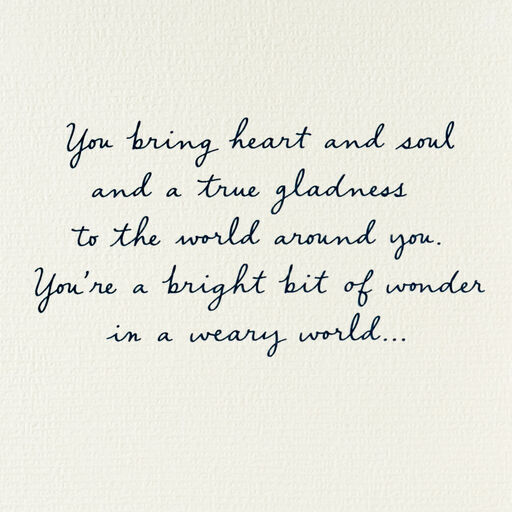 You bring heart and soul
and a true gladness
to the world around you.
You're a bright bit of wonder
in a weary world...